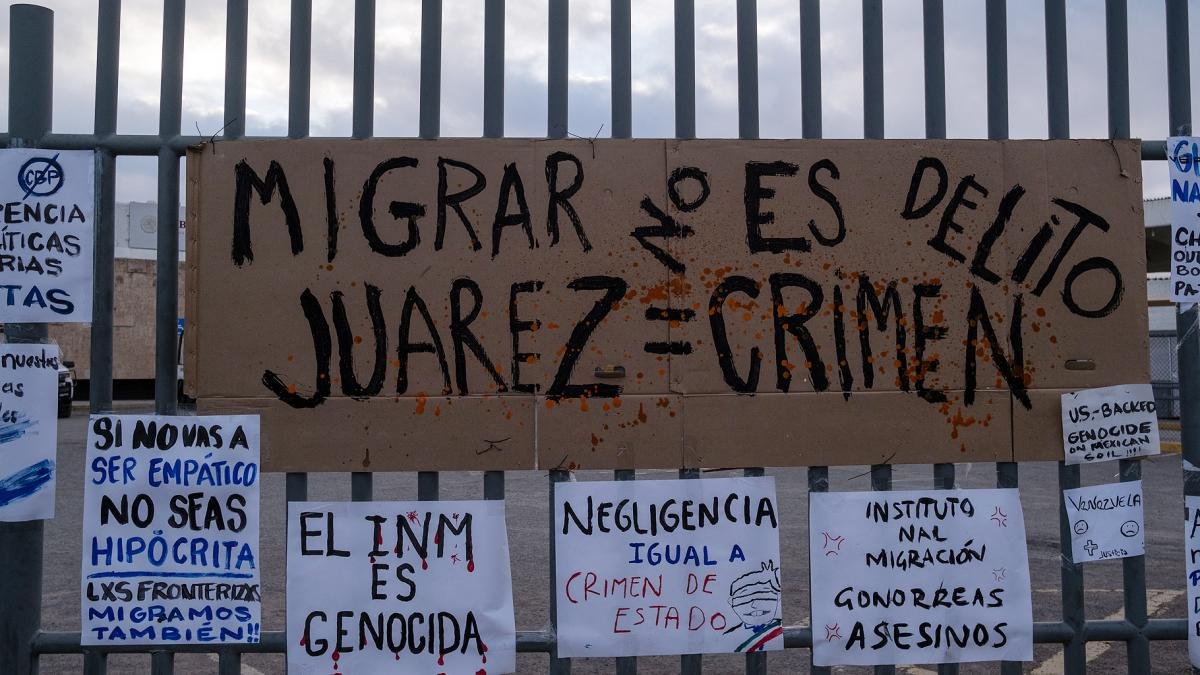 MIGRAR NO ES DELITO
JUAREZ = CRIMEN
CBP
ÍTICAS
RIAS
TAS
nuestros
as
SI NO VAS A
SER EMPÁTICO
NO SEAS
HIPÓCRITA
LXS FRONTERIZXS
MIGRAMOS
TAMBIÉN!!
EL INM
ES
GENOCIDA
NEGLIGENCIA
IGUAL A
CRIMEN DE
ESTADO
INSTITUTO
NAL
MIGRACIÓN
GONORREAS
ASESINOS
U.S.-BACKED
GENOCIDE
ON MEXICAN
SOIL !!!!
VENEZUELA
+ JUSTICIA
NA
CH
OUT
BO
PA